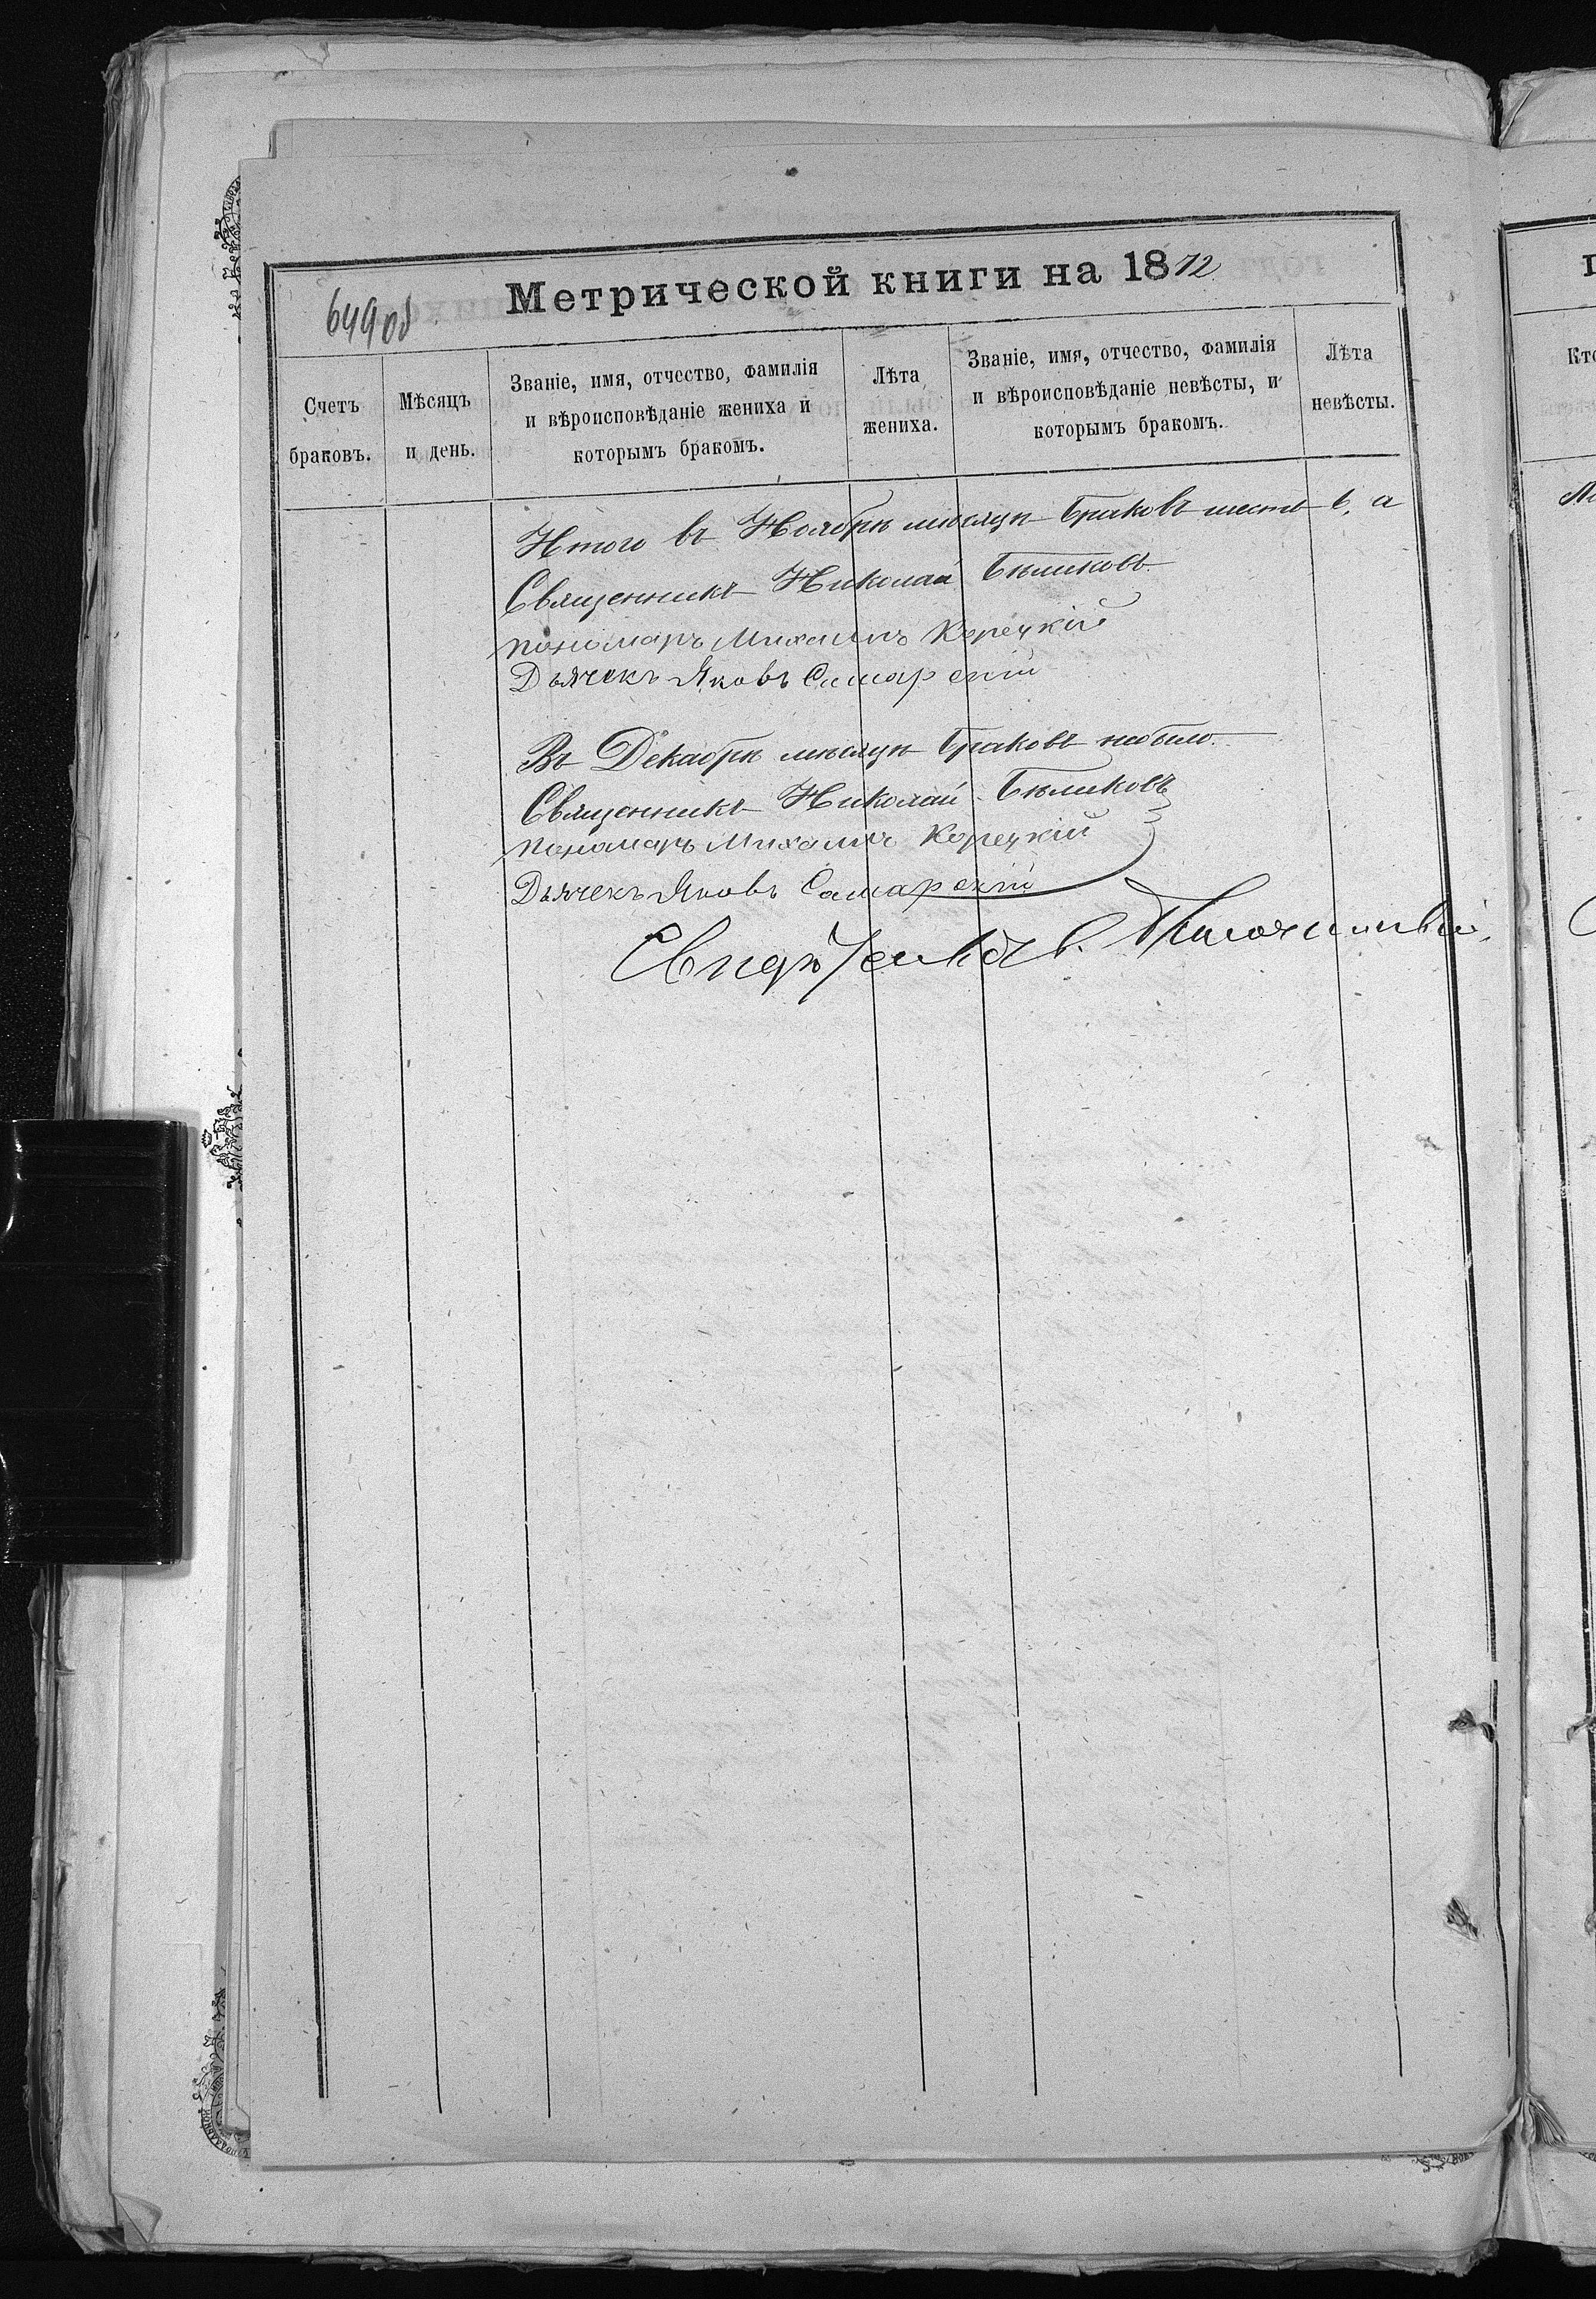 649 об
Метрической книги на 1872
Счетъ браковъ.
Мѣсяцъ и день.
Званіе, имя, отчество, фамилія
и вѣроисповѣданіе жениха и
которымъ бракомъ.
Лѣта
жениха.
Званіе, имя, отчество, фамилія
и вѣроисповѣданіе невѣсты, и
которымъ бракомъ.
Лѣта
невѣсты.
Итого въ Ноябрѣ мѣсяцѣ браковъ шесть 6. а
Священникъ Николай Бѣликовъ
пономарь Михаилъ Корецкій
Дьячекъ Яковъ Самарскій
Въ Декабрѣ мѣсяцѣ браковъ небыло.
Священникъ Николай Бѣликовъ
пономарь Михаилъ Корецкій
Дьячекъ Яковъ Самарскій